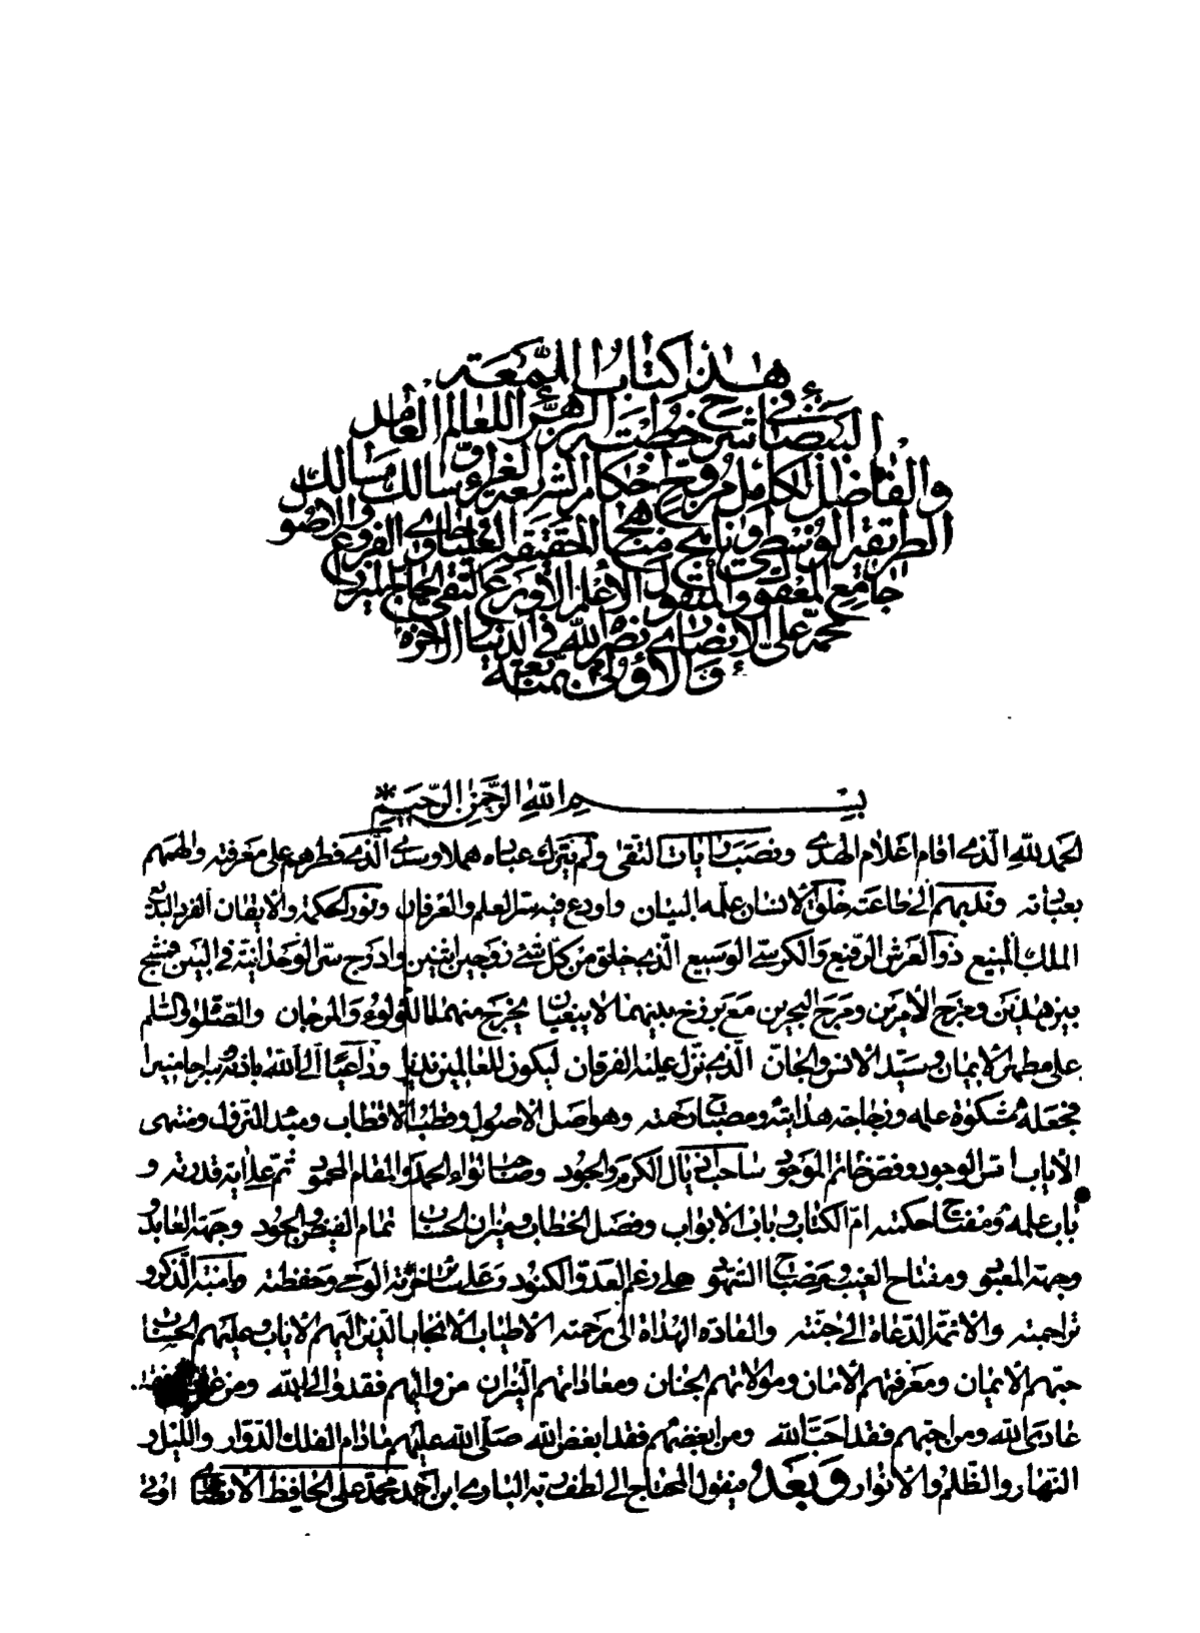 هذا كتاب اللمعة
البيضاء في شرح خطبة الزهراء للعالم العامل
والفاضل الكامل مروج احكام الشريعة الغراء وسالك مسالك
الطريقة الوسطى وناهج مناهج الحقيقة العليا حاوي الفروع والاصول
جامع المعقول والمنقول الاعلم الاورع التقي الحاج الميرزا
محمد علي الانصاري نصره الله في الدنيا والاخرة
والاولى بمنه
بسم الله الرحمن الرحيم
الحمد لله الذي اقام اعلام الهدى ونصب رايات التقى ولم يترك عباده هملا وسدى الذي فطرهم على معرفته والهمهم
بعباداته وندبهم الى طاعته خلق الانسان علمه البيان واودع فيه سر العلم والعرفان ونور الحكمة والايقان الفرد البديع
الملك المنيع ذو العرش الرفيع والكرسي الوسيع الذي خلق من كل شيء زوجين اثنين وادرج سر الوحدانية في البين
بين هذين ومزج الامرين ومرج البحرين مع برزخ بينهما لا يبغيان يخرج منهما اللؤلؤ والمرجان والصلوة والسلام
على مظهر الايمان وسيد الانس والجان الذي نزل عليه الفرقان ليكون للعالمين نذيرا وداعيا الى الله باذنه وسراجا منيرا
فجعله مشكوة علمه وزجاجة هدايته ومصباح رحمته وهو اصل الاصول وقطب الاقطاب ومبدء النزول ومنتهى
الاياب اس الوجود وفص خاتم الموجود ساحب اذيال الكرم والجود وصاحب لواء الحمد والمقام المحمود ثم على اية قدرته و
باب علمه ومفتاح حكمته ام الكتاب وباب الابواب وفصل الخطاب وميزان الحساب تمام الفيض والجود وجهة العابد و
وجهة المعبود ومفتاح الغيب ومصباح الشهود على رغم العدو الكنود وعلى سائر خزنة الوحي وحفظته وامنة الذكر و
تراجمته والائمة الدعاة الى جنته والقادة الهداة الى رحمته الاطياب الانجاب الذين اليهم الاياب وعليهم الحساب
حبهم الايمان ومعرفتهم الامان وموالاتهم الجنان ومعاداتهم النيران من والاهم فقد والى الله ومن
عادى الله ومن احبهم فقد احب الله ومن ابغضهم فقد ابغض الله صلى الله عليهم مادام الفلك الدوار والليل و
النهار والظلم والانوار وبعد فيقول المحتاج الى لطف ربه الباري ابن احمد محمد علي الحافظ الانصاري اوتي